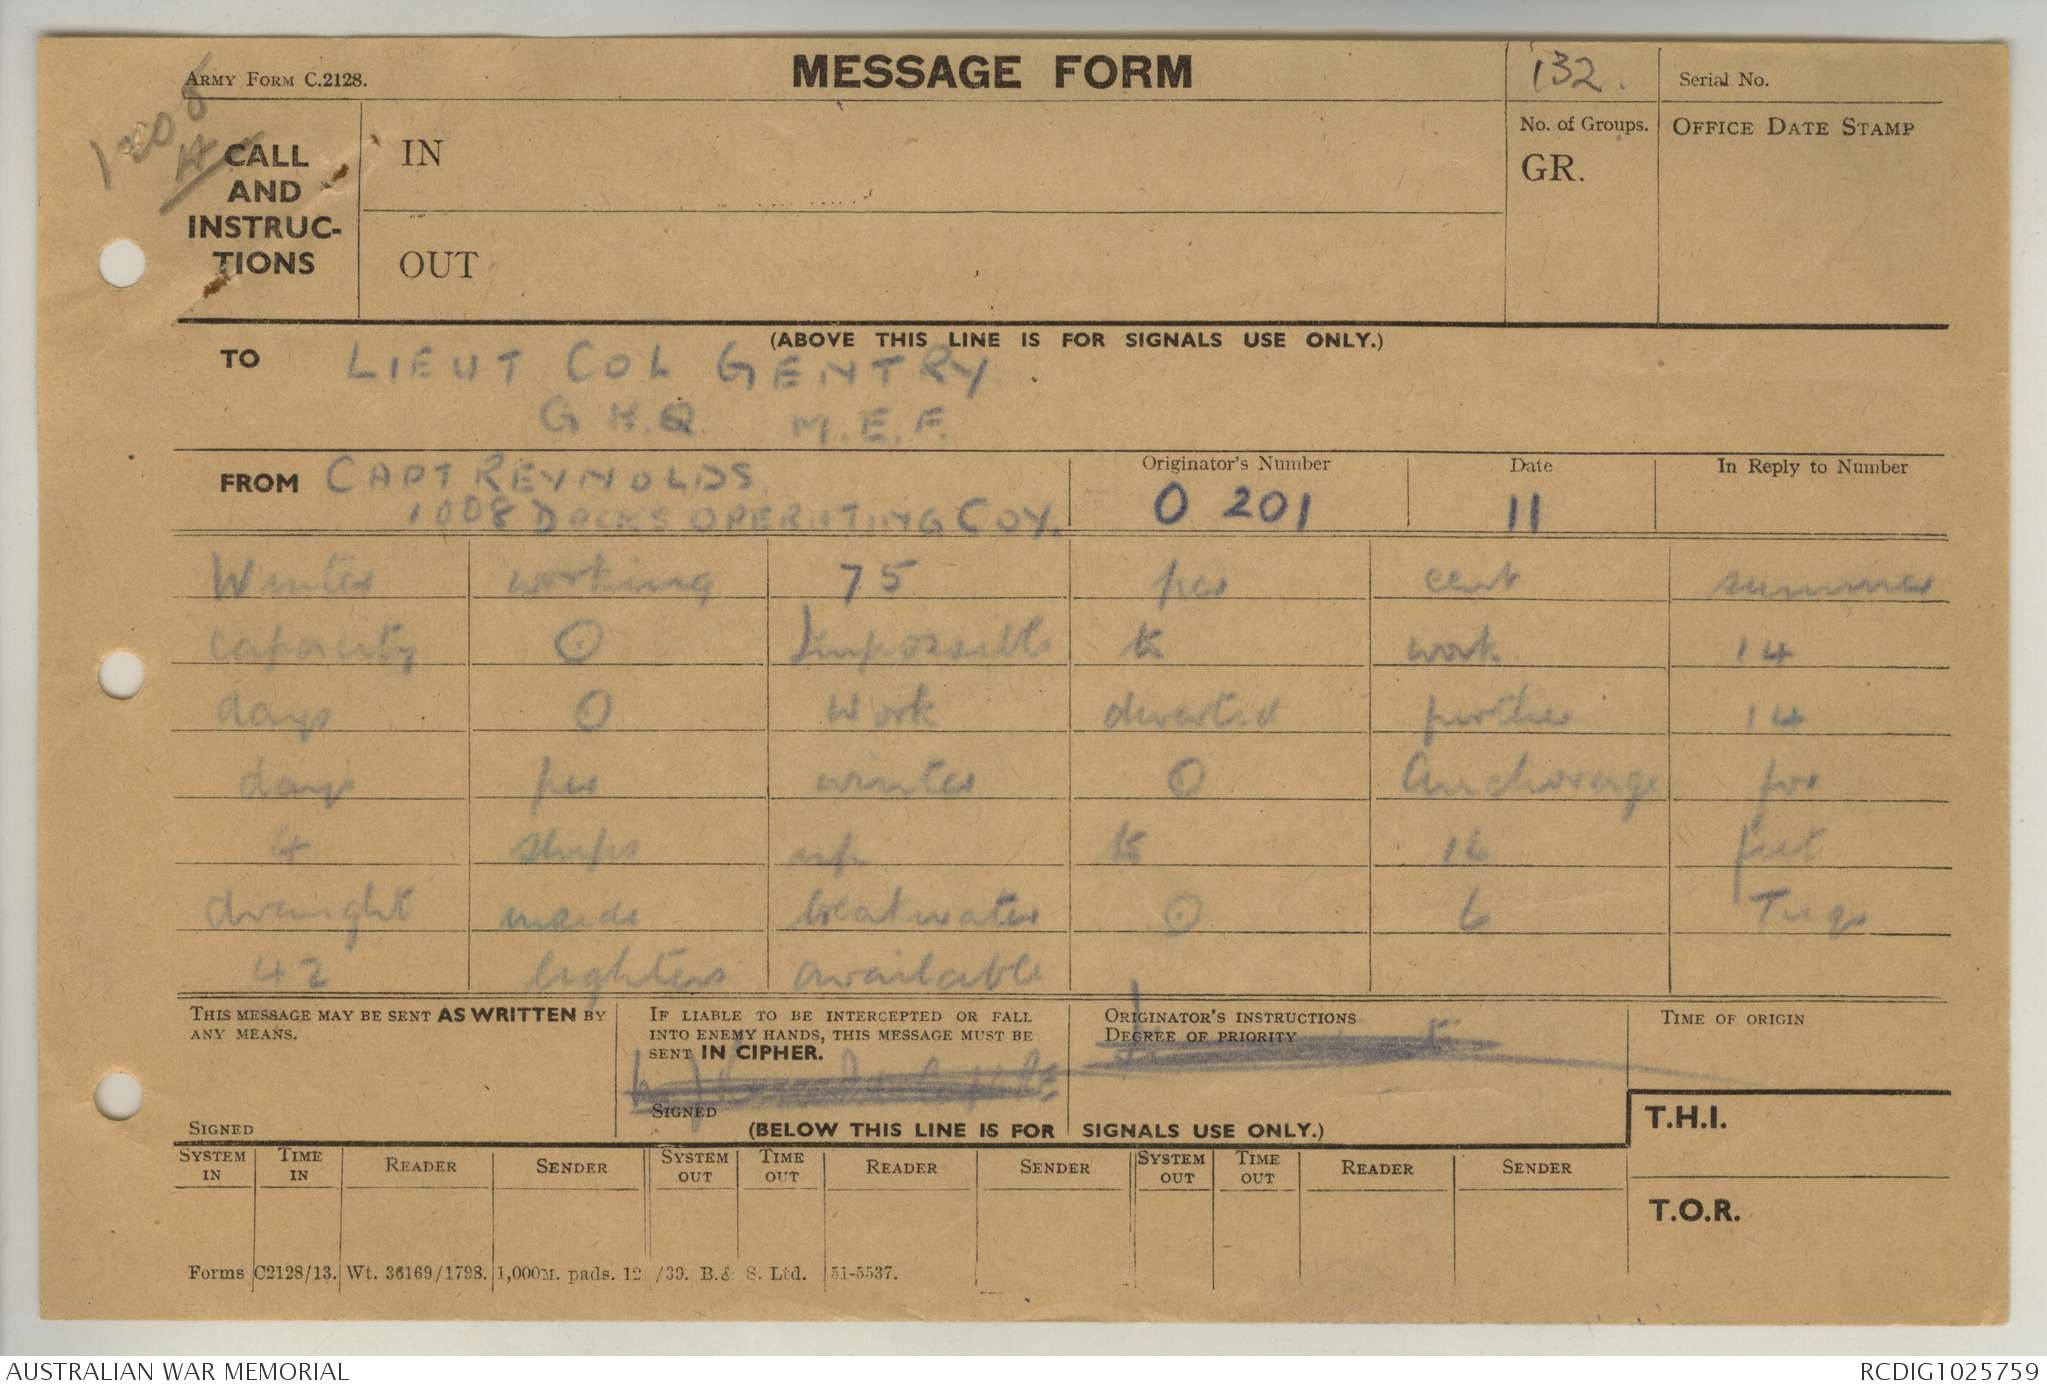 ARMY FORM C.2128.
MESSAGE FORM
132.
Serial No.
CALL
AND
INSTRUC-
TIONS
IN
OUT
No. of Groups.
GR.
OFFICE DATE STAMP
(ABOVE THIS LINE IS FOR SIGNALS USE ONLY.)
TO LIEUT COL GENTRY
G H.Q. M.E.F.
FROM CAPT REYNOLDS.
1008 DOCKS OPERATING COY.
Originator's Number
0 201
Date
11
In Reply to Number
Winter working 75 per cent summer
capacity ⊙ Impossible to work 14
days ⊙ Work diverted further 14
days per winter ⊙ Anchorage for
4 ships up to 16 feet
draught inside breakwater ⊙ 6 Tugs
42 lighters available
THIS MESSAGE MAY BE SENT AS WRITTEN BY
ANY MEANS.
SIGNED
IF LIABLE TO BE INTERCEPTED OR FALL
INTO ENEMY HANDS, THIS MESSAGE MUST BE
SENT IN CIPHER.
SIGNED
ORIGINATOR'S INSTRUCTIONS
DEGREE OF PRIORITY
TIME OF ORIGIN
(BELOW THIS LINE IS FOR SIGNALS USE ONLY.)
T.H.I.
T.O.R.
SYSTEM IN TIME IN READER SENDER SYSTEM OUT TIME OUT READER SENDER SYSTEM OUT TIME OUT READER SENDER
Forms C2128/13. Wt. 36169/1798. 1,000M. pads. 12/39. B.& S. Ltd. 51-5537.
AUSTRALIAN WAR MEMORIAL
RCDIG1025759